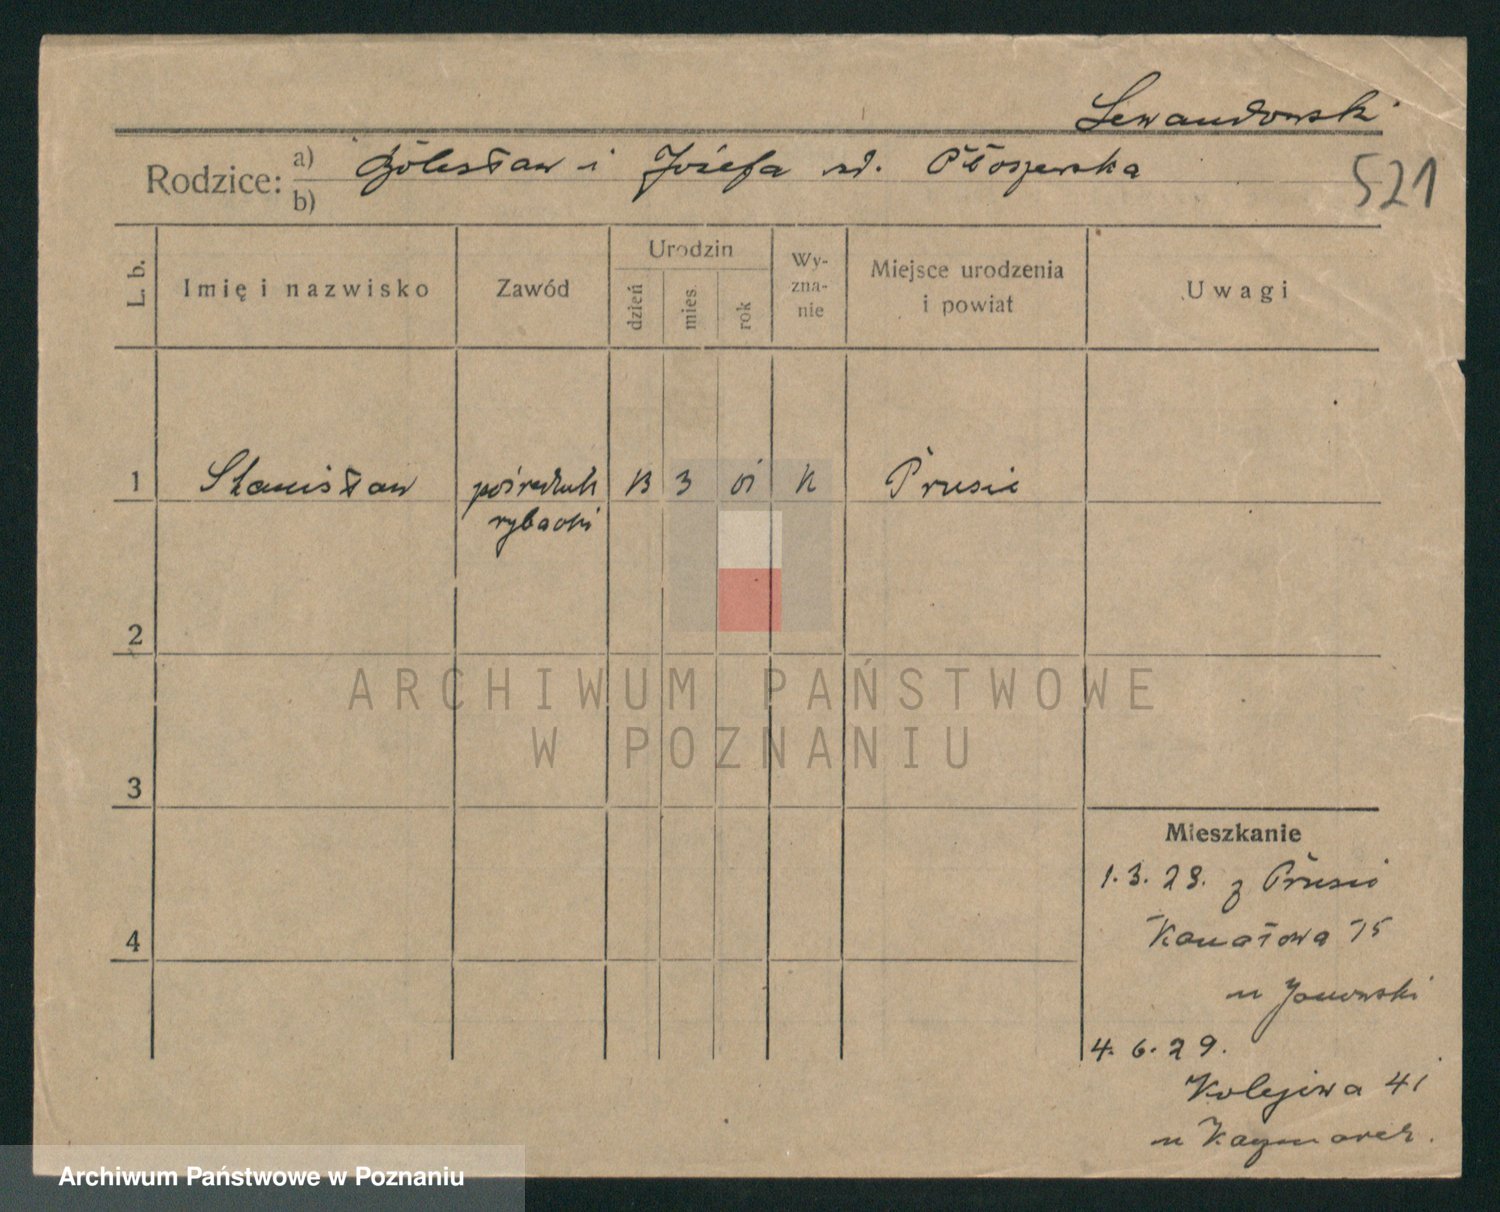 Lewandowski
Rodzice: a) Bolesław i Józefa rd. Płoszewska
b)
521
L. b.
Imię i nazwisko
Zawód
Urodzin
dzień
mies.
rok
Wy-
zna-
nie
Miejsce urodzenia
i powiat
Uwagi
1 Stanisław pośrednik 13 3 01 k Prusie
rybacki
2
3
4
Mieszkanie
1.3.28. z Prusic
Kanałowa 15
u Janowski
4.6.29.
Kolejowa 41
u Kaczmarek.
ARCHIWUM PAŃSTWOWE
W POZNANIU
Archiwum Państwowe w Poznaniu